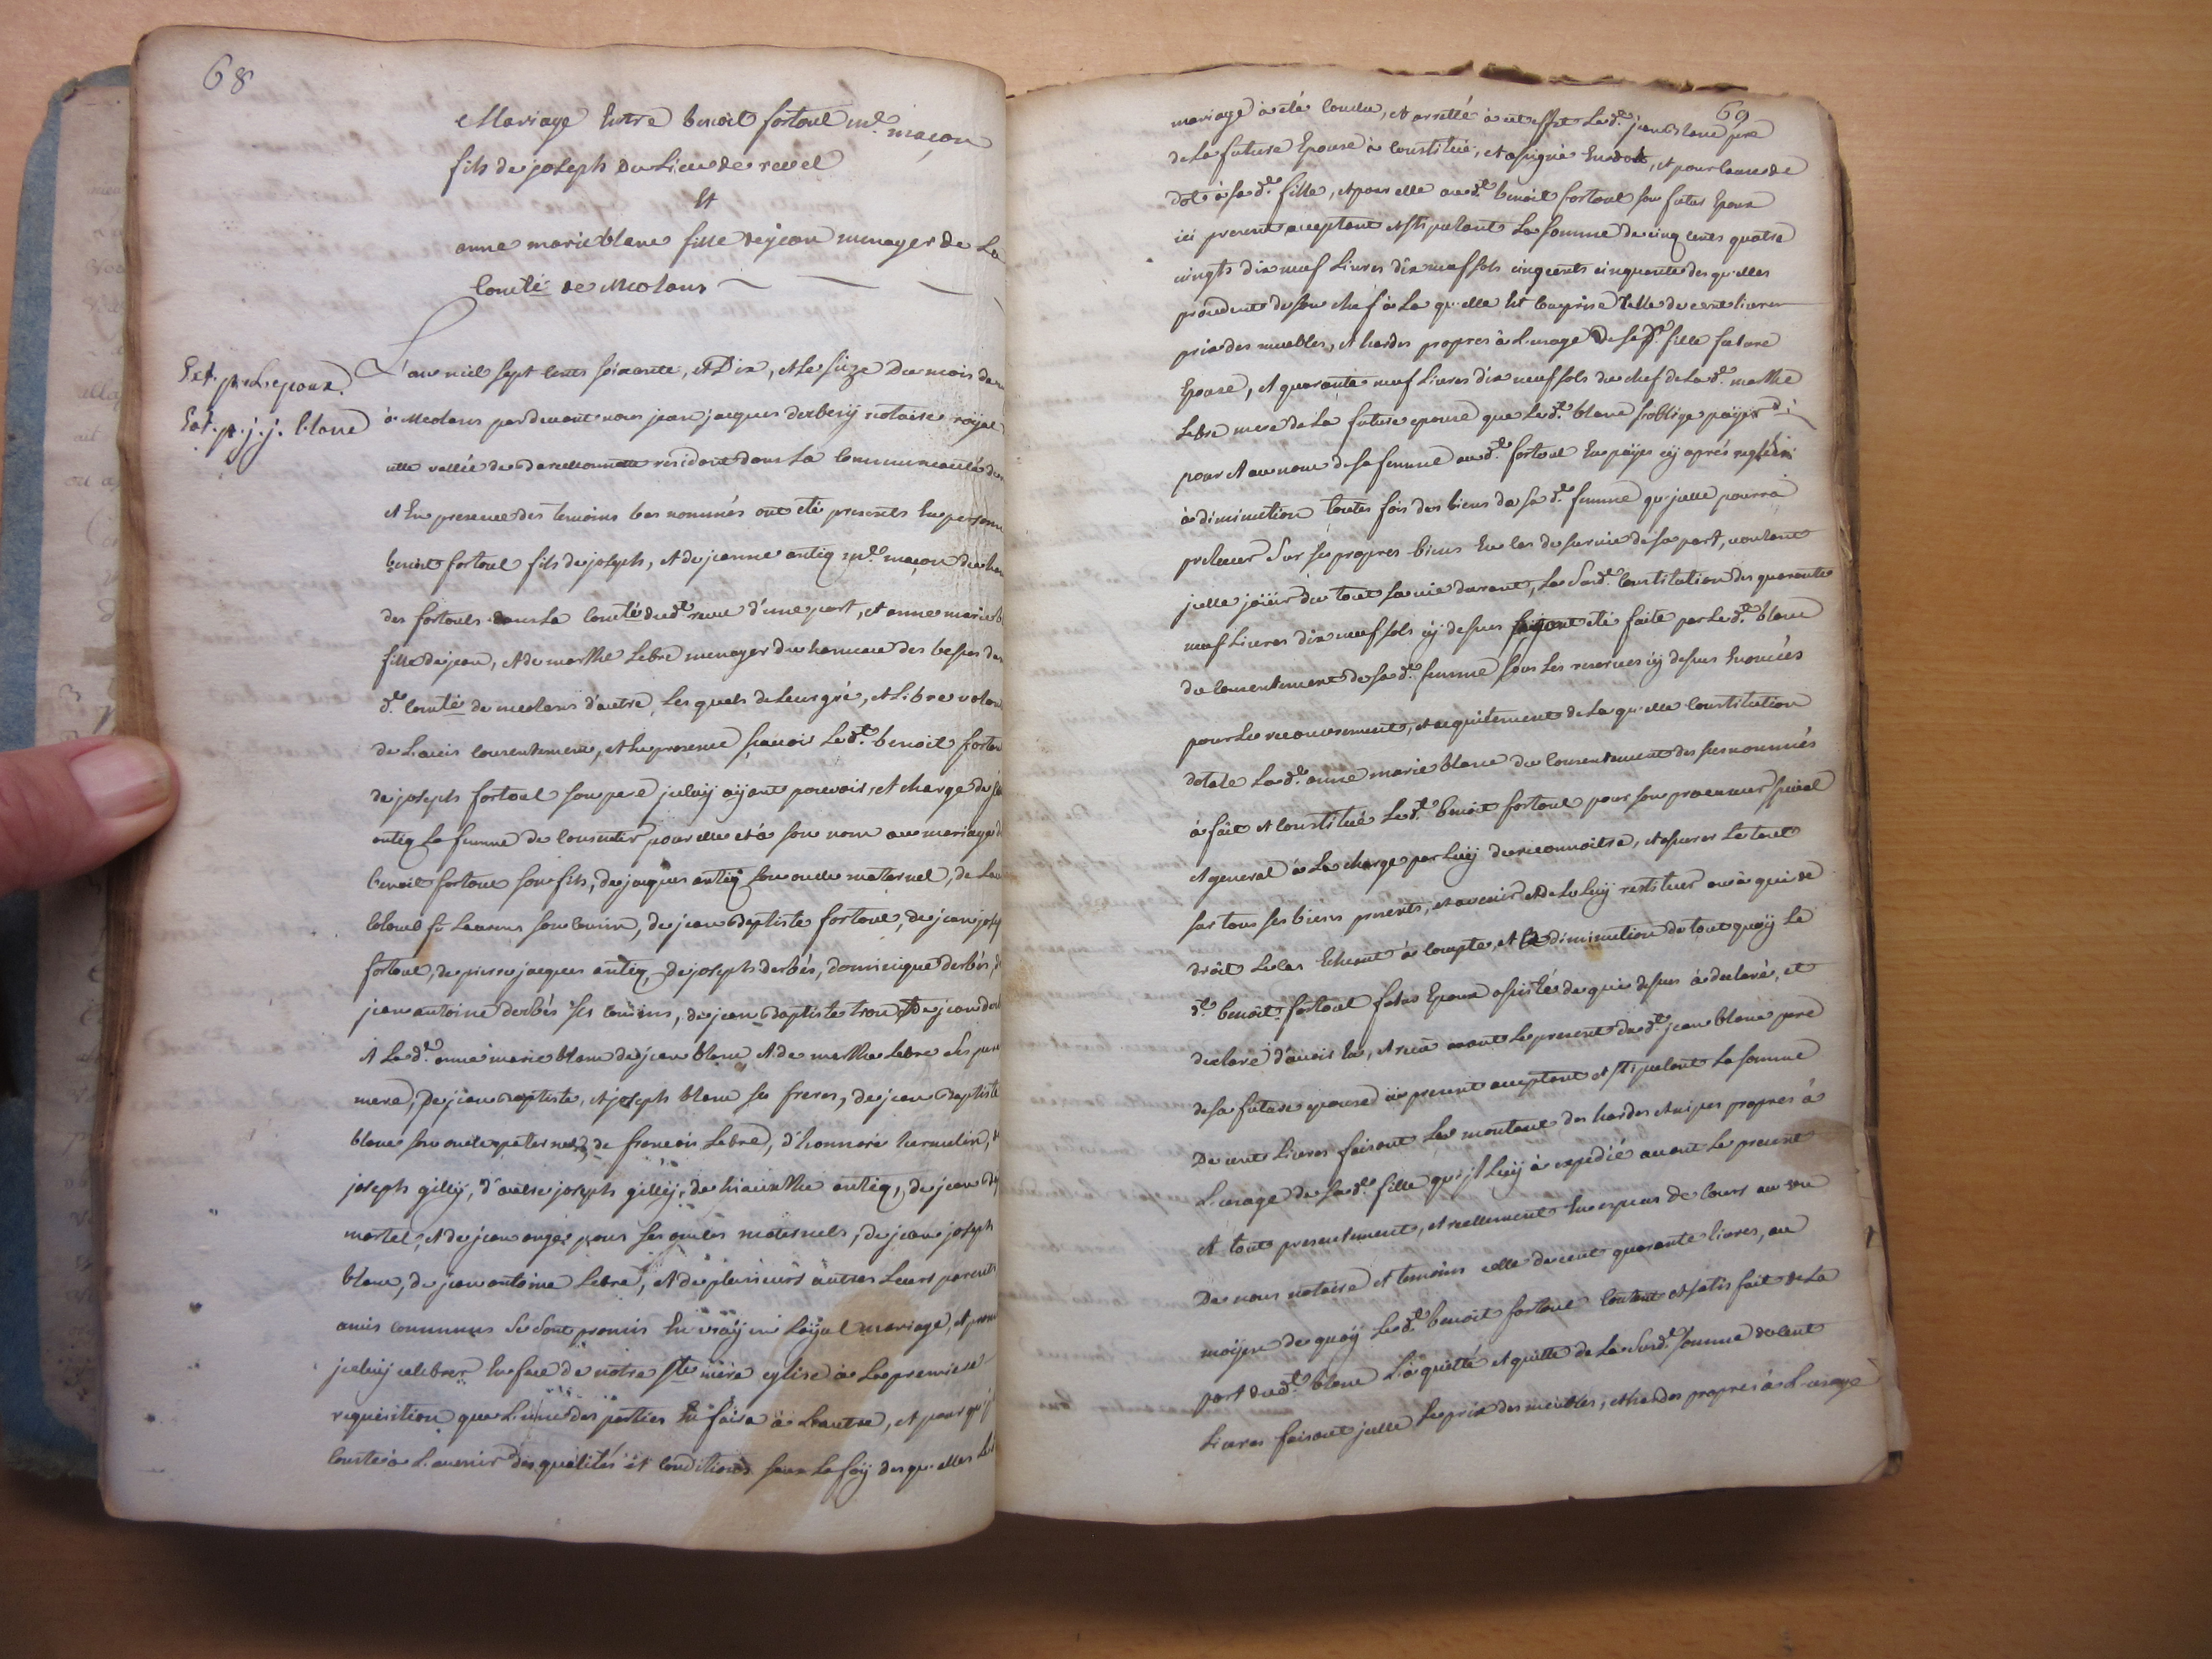 68
Mariage Entre benoit fortoul md. maçon
fils de joseph du Lieu de revel
Et
anne marie blanc fille de jean menager de La
Comté de Meolans
Ext. pr. L'epoux.
Ext. p. j. j. blanc
L'an mil sept cents soixante, et Dix, et Le seize Du mois de
à Meolans pardevant nous jean jacques derbesÿ notaire roÿal
cette vallée de Barcellonnette residant dans La Communeauté de
et En presence des temoins bas nommés ont eté presents En personne
benoit fortoul fils de joseph, et de jeanne antiq md. maçon du ham
des fortouls dans La Comté dud. revel d'une part, et anne marie b
fille de jean, et de marthe Lebre menager du hameau des bespes de
d. Comté de meolans d'autre, Lesquels de Leur gré, et Libre volon
de L'avis consentement, et En presence sçavoir Led. benoit fortou
de joseph fortoul son pere jceluÿ aÿant pouvoir, et charge de
antiq sa femme de consentir pour elle et à son nom au mariage d
benoit fortoul son fils, de jacques antiq son oncle maternel, de
fû Laurens son cousin, de jean Baptiste fortoul, de jean josep
fortoul, de pierre jacques antiq, de joseph derbés, dominique derbés,
jean antoine derbés ses cousins, de jean Baptiste tron et de jean
et Lad. anne marie blanc de jean blanc et de marthe Lebre ses pere
mere, de jean Baptiste, et joseph blanc ses freres, de jean Baptiste
blanc son oncle paternel, de francois Lebre, d'honnoré hermelin,
joseph gillÿ, d'autre joseph gillÿ, de hiacinthe antiq, de jean
martel, et de jean ses oncles maternels, de jean joseph
blanc, de jean antoine Lebre, et de plusieurs autres Leurs parents
amis communs se sont promis En vraÿ en Loÿal mariage, et prom
jceluÿ celebrer En face de notre ste. mere eglise à La premiere
requisition que L'une des parties En faira à L'autre, et pour qu'j
conste à L'avenir des qualités et conditions sous La foÿ desquelles Led
69
mariage à eté Conclu, et arretté à cet effet Led. jean Blanc pere
de La future Epouse à Constitué, et assigné En dot, et pour cause de
dot à sad. fille, et pour elle aud. benoit fortoul son futur Epoux
ici present acceptant et stipulant La somme de cinq cents quatre
vingts dix neuf Livres dix neuf sols cinq cents cinquante desquelles
procedent de son chef à Laquelle Est comprise Celle de cent livres
prix des meubles, et hardes propres à L'usage de sad. fille future
Epouse, et quarante neuf Livres dix neuf sols du chef de Lad. marthe
Lebre mere de La future epouse que Led. blanc s'oblige païer
pour et au nom de sa femme aud. fortoul En païes cÿ aprés
à diminution toutes fois des biens de sad. femme qu'jcelle pourra
prelever Sur ses propres biens En Cas de survie de sa part, voulant
jcelle joüir du tout sa vie durant, La Susd. Constitution des quarante
neuf Livres dix neuf sols cÿ dessus aÿant eté faite par Led. blanc
du consentement de sad. femme sous Les reserves cÿ dessus Enoncées
pour Le recouvrement, et acquitement de Laquelle Constitution
dotale Lad. anne marie blanc du Consentement des susnommés
à fait et Constitué Led. benoit fortoul pour son procureur special
et general à La charge par Luÿ de reconnoitre, et assurer Le tout
sur tous ses biens presents, et avenir et de La Luÿ restituer ou à qui de
droit Le Cas Echeant à Compte, et diminution de tout quoÿ Le
d. benoit fortoul futur Epoux assisté de qui dessus à declaré, et
declare d'avoir Eu, et recu avant Le present dud. jean blanc pere
de sa future epouse ici present acceptant et stipulant La somme
De cent Livres faisant Le montant des hardes et nipes propres à
L'usage de sad. fille qu'jl Luÿ à expedié avant Le present
et tout presentement, et reellement En especes de Cours au vu
De nous notaire et temoins celle de cent quarante livres, au
moÿen de quoÿ Led. benoit fortoul Content et satisfait de La
part dud. blanc L'à quitté et quitte de La Susd. somme de Cent
Livres faisant jcelle Le prix des meubles, et hardes propres à L'usage